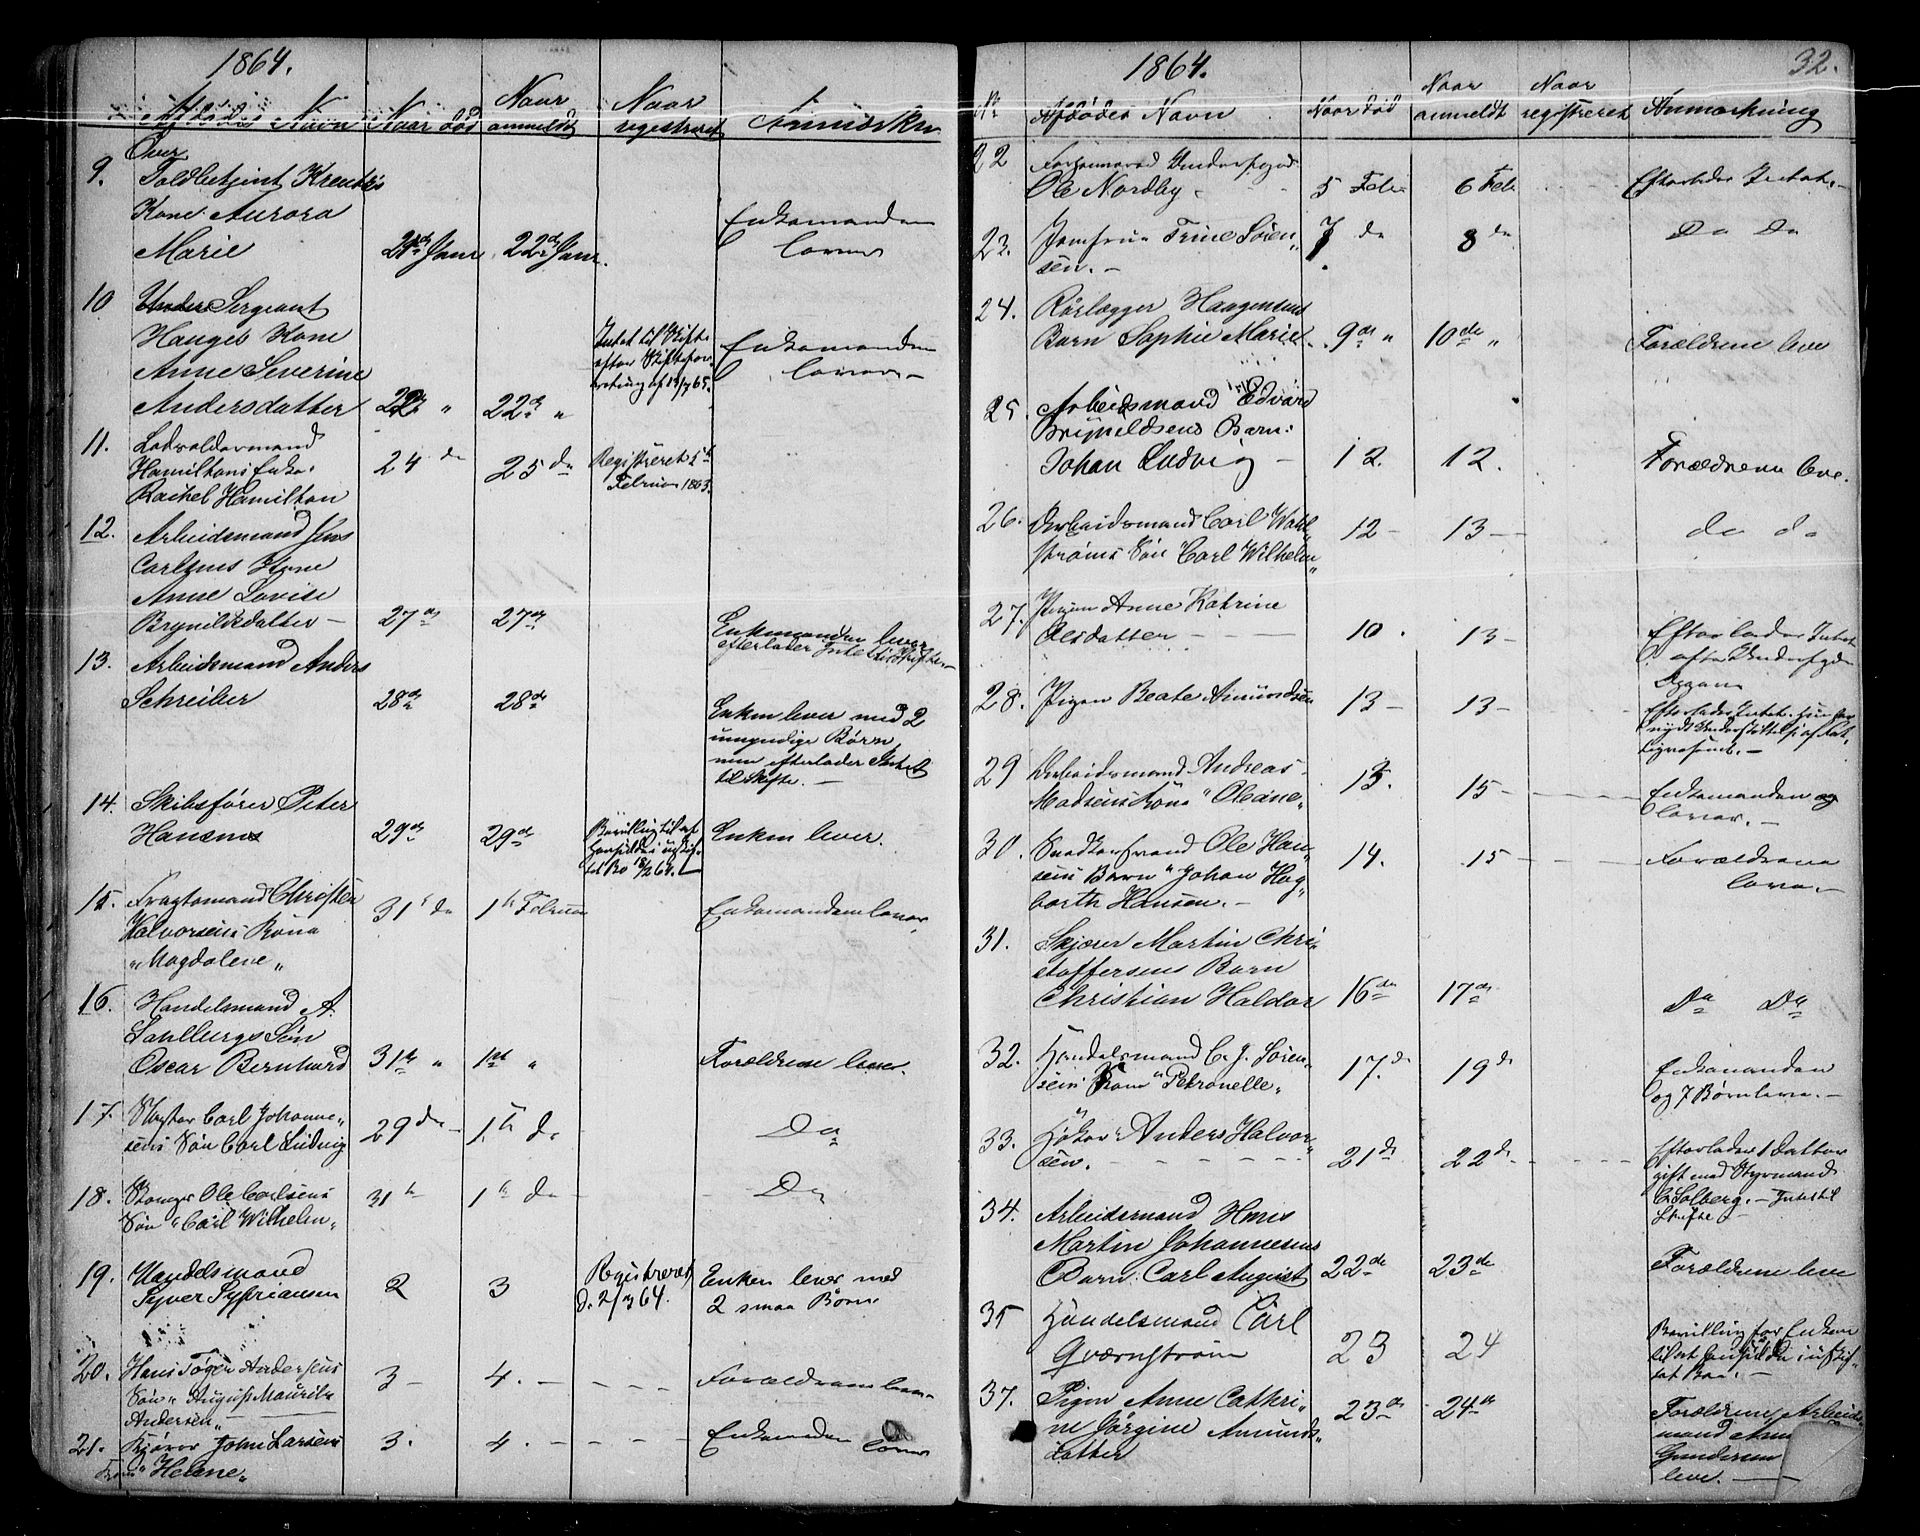 1864.
Afdødes Navn Naar død Naar anmeldt Naar registreret Anmærkn
9. Over
Toldbetjent
Kone Aurora
Marie 21de Janr 22de Janr. Enkemanden
lever
10 Under Sergeant
Hauges Kone
Anne Severine
Andersdatter 22de " 22de " Intet til Skifte
efter Skiftefor-
retning af Enkemanden
lever –
11. Lodsoldermand
Hamiltons Enke
Rachel Hamilton 24 de 25 de Registreret
Februar
12. Arbeidsmand Jens
Carlsens Kone
Anne Lovise
Brynildsdatter – 27de 27de Enkemanden lever
efterlader Intet til Skifte –
13. Arbeidsmand Anders
Schreiber 28de 28de Enken lever med 2
umyndige Børn
men efterlader Intet
til Skifte. –
14. Skibsfører Peter
Hansens 29de 29de Bevilling til at
hensidde i uskif-
tet Bo 18/2 64. Enken lever.
15. Fragtemand Christen
Halvorsens Kone
"Magdalene" 31te de 1te Februar Enkemanden lever
16. Handelsmand A.
Sahlbergs Søn
Oscar Bernhard 31te " 1ste " Forældrene lever.
17. Slagter Carl Johanne-
sens Søn Carl Ludvig 29de – 1te de Da
18. Ole Carlsens
Søn "Carl Wilhelm" 31te 1te de Da
19. Handelsmand
Syver Sypriansen 2 3 Registreret
d. 2/3 64. Enken lever med
2 smaa Børn.
20. Hans Tøger Andersens
Søn "August Mauritz
Andersen" 3 – 4. – Forældrene leve
21. Kjører John Larsens
Kone "Helene" 3. 4. – Enkemanden
lever
1864. 32.
No Afdødes Navn Naar død Naar anmeldt Naar registreret Anmærkning
22
Ole Nordby 5 Febr 6 Feb Efterlader Intet. –
23. Jomfrue Trine Søren-
sen. – 7 de 8 de Do Do
24. Rørlægger Haagensens
Barn Sophie Marie 9de " 10de " Forældrene leve
25. Arbeidsmand Edvard
Brynildsens Barn:
Johan Ludvig – 12. 12. Forældrene leve.
26. Arbeidsmand Carl Wahl-
strøms Søn "Carl Wilhelm" 12 – 13 – do do
27. Pigen Anne Katrine
Olsdatter – 10. 13 – Efterlader Intet
efter
28. Pigen Beate Amundsen 13 – 13 – Efterlader Intet.
nydt Understøttelse af Fat-
29 Arbeidsmand Andreas
Madsens Kone "Oleane" 13. 15 – Enkemanden
lever. –
30. Ole Han-
sens Barn "Johan Hag-
barth Hansen. – 14. 15 – Forældrene
leve. –
31. Skjærer Martin Chri-
stoffersens Barn
Christian Haldor 16de 17de Da Da
32. Handelsmand C. J. Søren-
sens Kone "Petronelle" 17. de 19 de Enkemanden
og 7 Børn leve. –
33. Høker Anders Halvor-
sen. – 21 de 22 de Efterlader 1 Datter
gift med Styrmand
Solberg. – Intet til
Skifte –
34. Arbeidsmand Hans
Martin Johannesens
Barn: Carl August 22de 23de Forældrene leve
35 Handelsmand Carl
Qværnstrøm 23 24 Bevilling for Enken
til at hensidde i uskif-
tet Boe. –
37. Pigen Anne Cathri-
ne Jørgine Amunds-
datter 23de 24de Forældrene Arbeids-
mand
Gundersen
leve. –